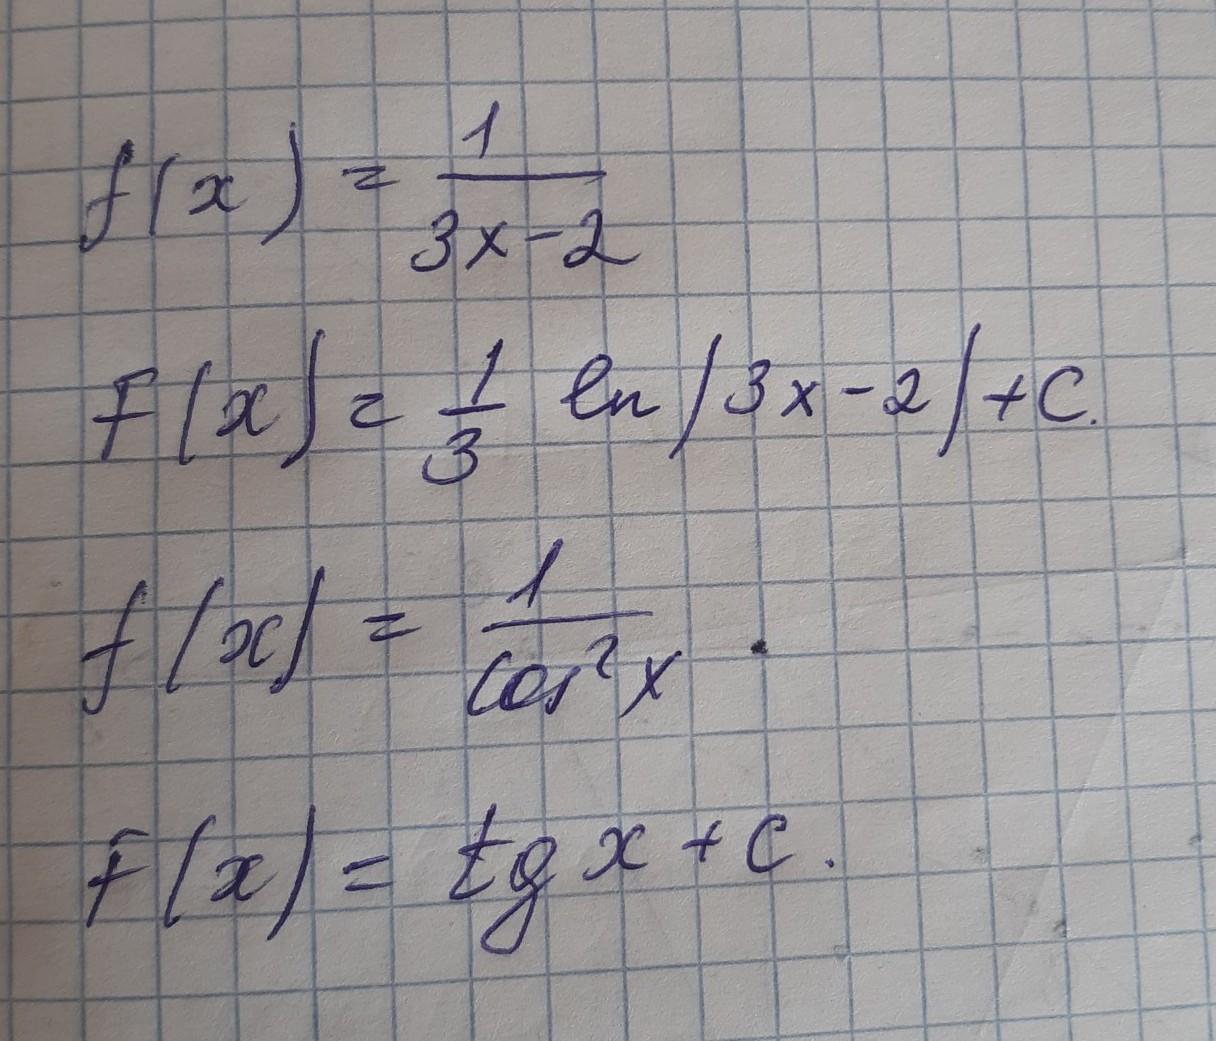 f(x) = 1/(3x-2)
F(x) = 1/3 ln|3x-2|+C.
f(x) = 1/cos²x
F(x) = tg x + C.